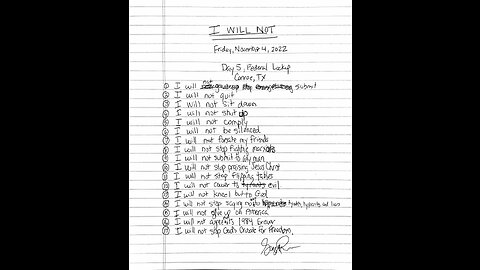 I WILL NOT
Friday, November 4, 2022
Day 5, Federal Lockup
Conroe, TX
① I will not submit
② I will not quit
③ I will not sit down
④ I will not shut up
⑤ I will not comply
⑥ I will not be silenced
⑦ I will not forsake my friends
⑧ I will not stop fighting
⑨ I will not submit to
⑩ I will not stop praising Jesus Christ
⑪ I will not stop flipping tables
⑫ I will not cower to tyrants evil.
⑬ I will not kneel but to God
⑭ I will not stop saying no to tyrants and liars
⑮ I will not give up on America
⑯ I will not 1984
⑰ I will not stop God's for Freedom.